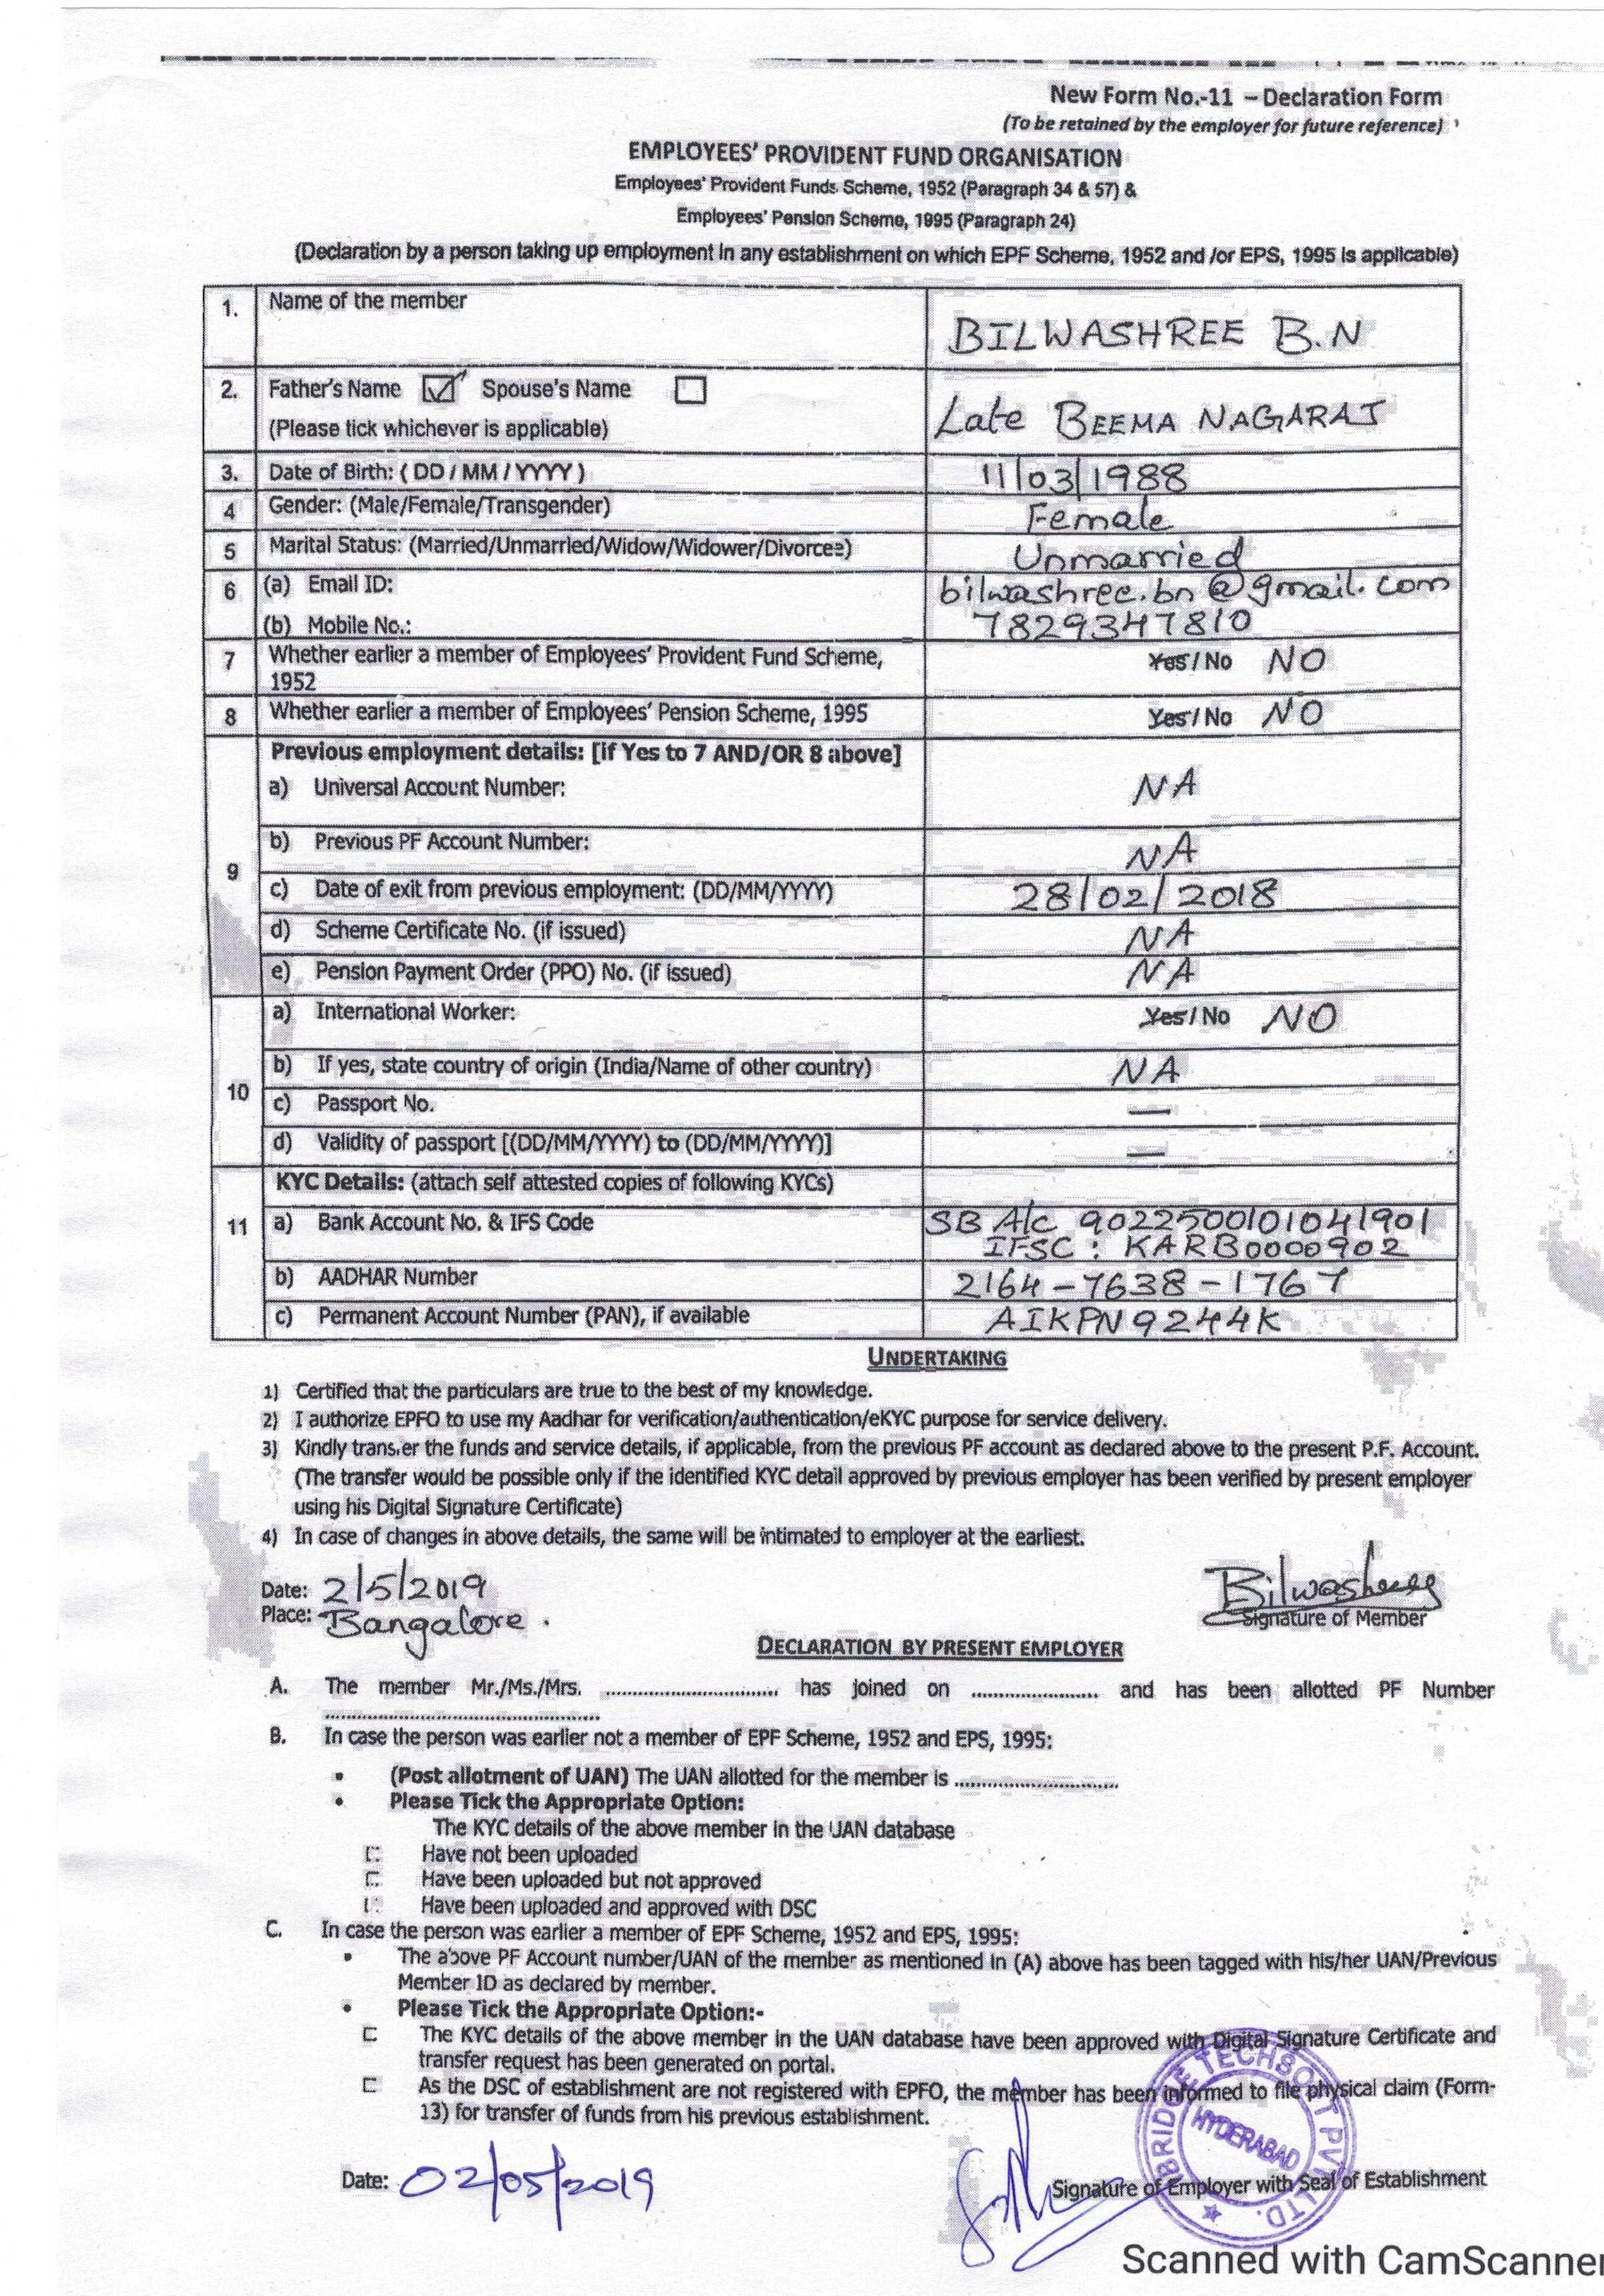 New Form No.-11 – Declaration Form
(To be retained by the employer for future reference)
EMPLOYEES' PROVIDENT FUND ORGANISATION
Employees' Provident Funds Scheme, 1952 (Paragraph 34 & 57) &
Employees' Pension Scheme, 1995 (Paragraph 24)
(Declaration by a person taking up employment in any establishment on which EPF Scheme, 1952 and /or EPS, 1995 is applicable)
1. Name of the member BILWASHREE B.N
2. Father's Name Spouse's Name
(Please tick whichever is applicable) Late BEEMA NAGARAJ
3. Date of Birth: ( DD / MM / YYYY ) 11/03/1988
4 Gender: (Male/Female/Transgender) Female
5 Marital Status: (Married/Unmarried/Widow/Widower/Divorcee) Unmarried
6 (a) Email ID: bilwashree.bn@gmail.com
(b) Mobile No.: 7829347810
7 Whether earlier a member of Employees' Provident Fund Scheme, 1952 Yes / No NO
8 Whether earlier a member of Employees' Pension Scheme, 1995 Yes / No NO
9 Previous employment details: [if Yes to 7 AND/OR 8 above]
a) Universal Account Number: NA
b) Previous PF Account Number: NA
c) Date of exit from previous employment: (DD/MM/YYYY) 28/02/2018
d) Scheme Certificate No. (if issued) NA
e) Pension Payment Order (PPO) No. (if issued) NA
10 a) International Worker: Yes / No NO
b) If yes, state country of origin (India/Name of other country) NA
c) Passport No. —
d) Validity of passport [(DD/MM/YYYY) to (DD/MM/YYYY)] —
11 KYC Details: (attach self attested copies of following KYCs)
a) Bank Account No. & IFS Code SB A/c 9022500101041901
IFSC : KARB0000902
b) AADHAR Number 2164-7638-1767
c) Permanent Account Number (PAN), if available AIKPN9244K
UNDERTAKING
1) Certified that the particulars are true to the best of my knowledge.
2) I authorize EPFO to use my Aadhar for verification/authentication/eKYC purpose for service delivery.
3) Kindly transfer the funds and service details, if applicable, from the previous PF account as declared above to the present P.F. Account.
(The transfer would be possible only if the identified KYC detail approved by previous employer has been verified by present employer
using his Digital Signature Certificate)
4) In case of changes in above details, the same will be intimated to employer at the earliest.
Date: 2/5/2019
Place: Bangalore.
Bilwashree
Signature of Member
DECLARATION BY PRESENT EMPLOYER
A. The member Mr./Ms./Mrs. .............................. has joined on ...................... and has been allotted PF Number
................................................
B. In case the person was earlier not a member of EPF Scheme, 1952 and EPS, 1995:
• (Post allotment of UAN) The UAN allotted for the member is ............................
• Please Tick the Appropriate Option:
The KYC details of the above member in the UAN database
Have not been uploaded
Have been uploaded but not approved
Have been uploaded and approved with DSC
C. In case the person was earlier a member of EPF Scheme, 1952 and EPS, 1995:
• The above PF Account number/UAN of the member as mentioned in (A) above has been tagged with his/her UAN/Previous
Member ID as declared by member.
• Please Tick the Appropriate Option:-
The KYC details of the above member in the UAN database have been approved with Digital Signature Certificate and
transfer request has been generated on portal.
As the DSC of establishment are not registered with EPFO, the member has been informed to file physical claim (Form-
13) for transfer of funds from his previous establishment.
BRIDGE TECHSOFT PVT. LTD.
HYDERABAD
Date: 02/05/2019
Signature of Employer with Seal of Establishment
Scanned with CamScanner